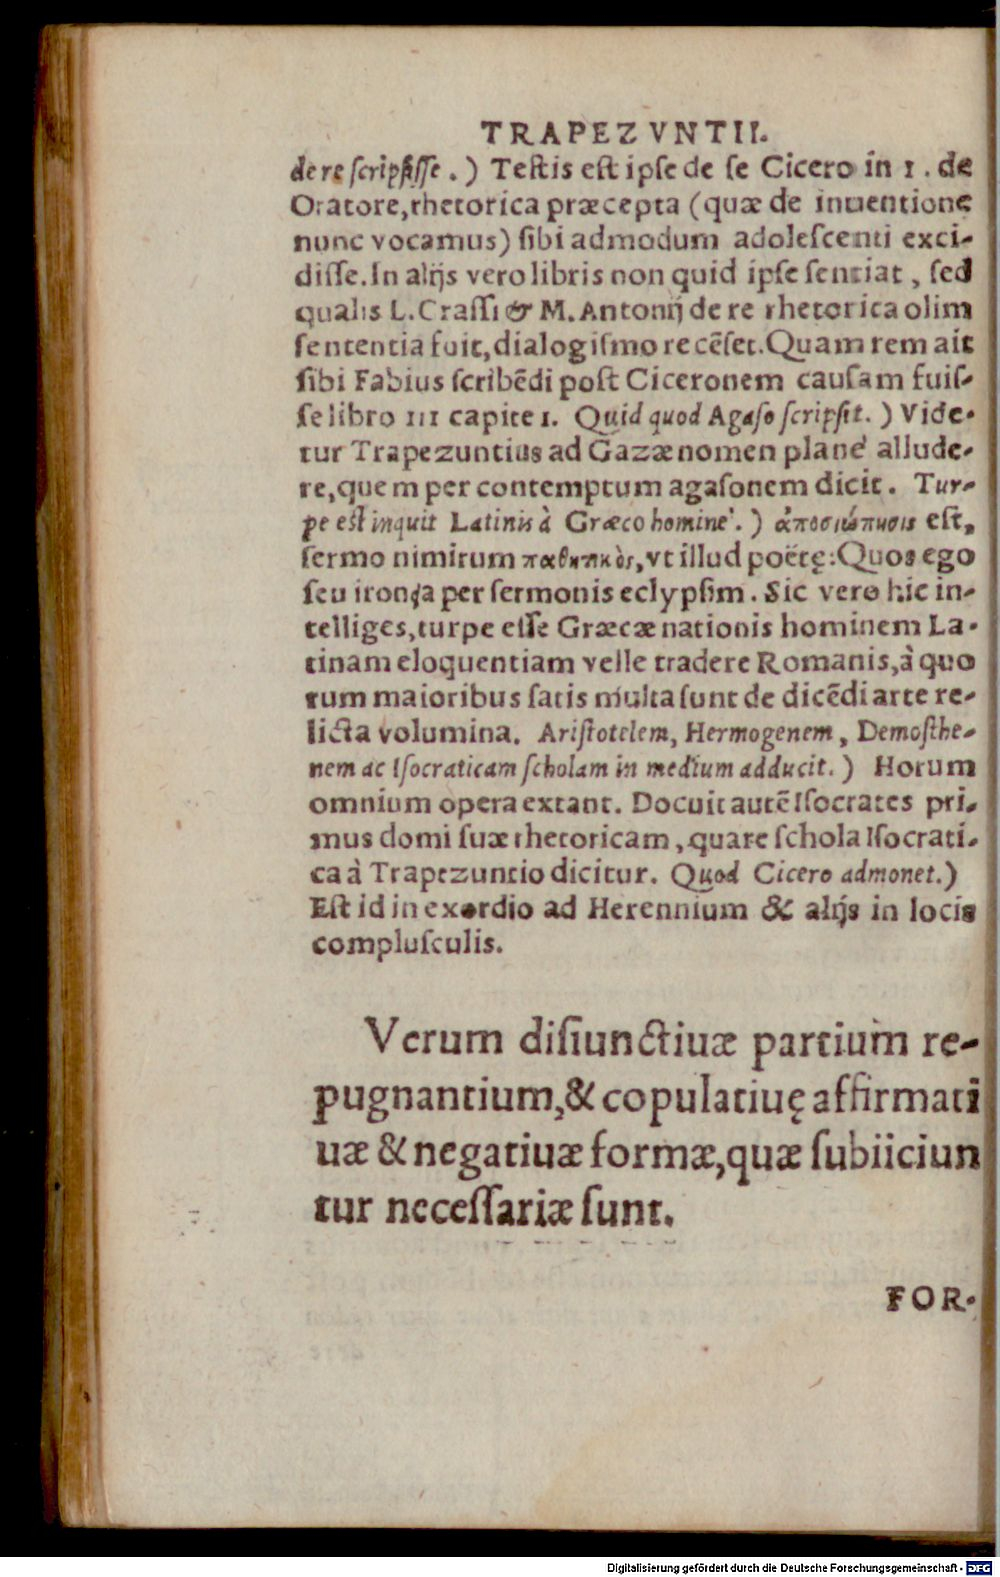 TRAPEZVNTII.
de re ſcripſiſſe.) Teſtis eſt ipſe de ſe Cicero in 1. de
Oratore, rhetorica præcepta (quæ de inuentione
nunc vocamus) ſibi admodum adoleſcenti exci-
diſſe. In alijs vero libris non quid ipſe ſentiat, ſed
qualis L. Craſſi & M. Antonij de re rhetorica olim
ſententia fuit, dialogiſmo recēſet. Quam rem ait
ſibi Fabius ſcribēdi poſt Ciceronem cauſam fuiſ-
ſe libro III capite 1. Quid quod Agaſo ſcripſit.) Vide-
tur Trapezuntius ad Gazæ nomen planè allude-
re, quem per contemptum agaſonem dicit. Tur-
pe eſt inquit Latinis à Græco homine.) ἀποσιώπησις eſt,
ſermo nimirum παθητικὸς, vt illud poëtę: Quos ego
ſeu ironęa per ſermonis eclypſim. Sic vero hic in-
telliges, turpe eſſe Græcæ nationis hominem La-
tinam eloquentiam velle tradere Romanis, à quo
rum maioribus ſatis multa ſunt de dicēdi arte re-
licta volumina. Ariſtotelem, Hermogenem, Demoſthe-
nem ac Iſocraticam ſcholam in medium adducit.) Horum
omnium opera extant. Docuit autē Iſocrates pri-
mus domi ſuæ rhetoricam, quare ſchola Iſocrati-
ca à Trapezuntio dicitur. Quod Cicero admonet.)
Eſt id in exordio ad Herennium & alijs in locis
compluſculis.
Verum diſiunctiuæ partium re-
pugnantium, & copulatiuę affirmati
uæ & negatiuæ formæ, quæ ſubiiciun
tur neceſſariæ ſunt.
FOR-
Digitalisierung gefördert durch die Deutsche Forschungsgemeinschaft - DFG